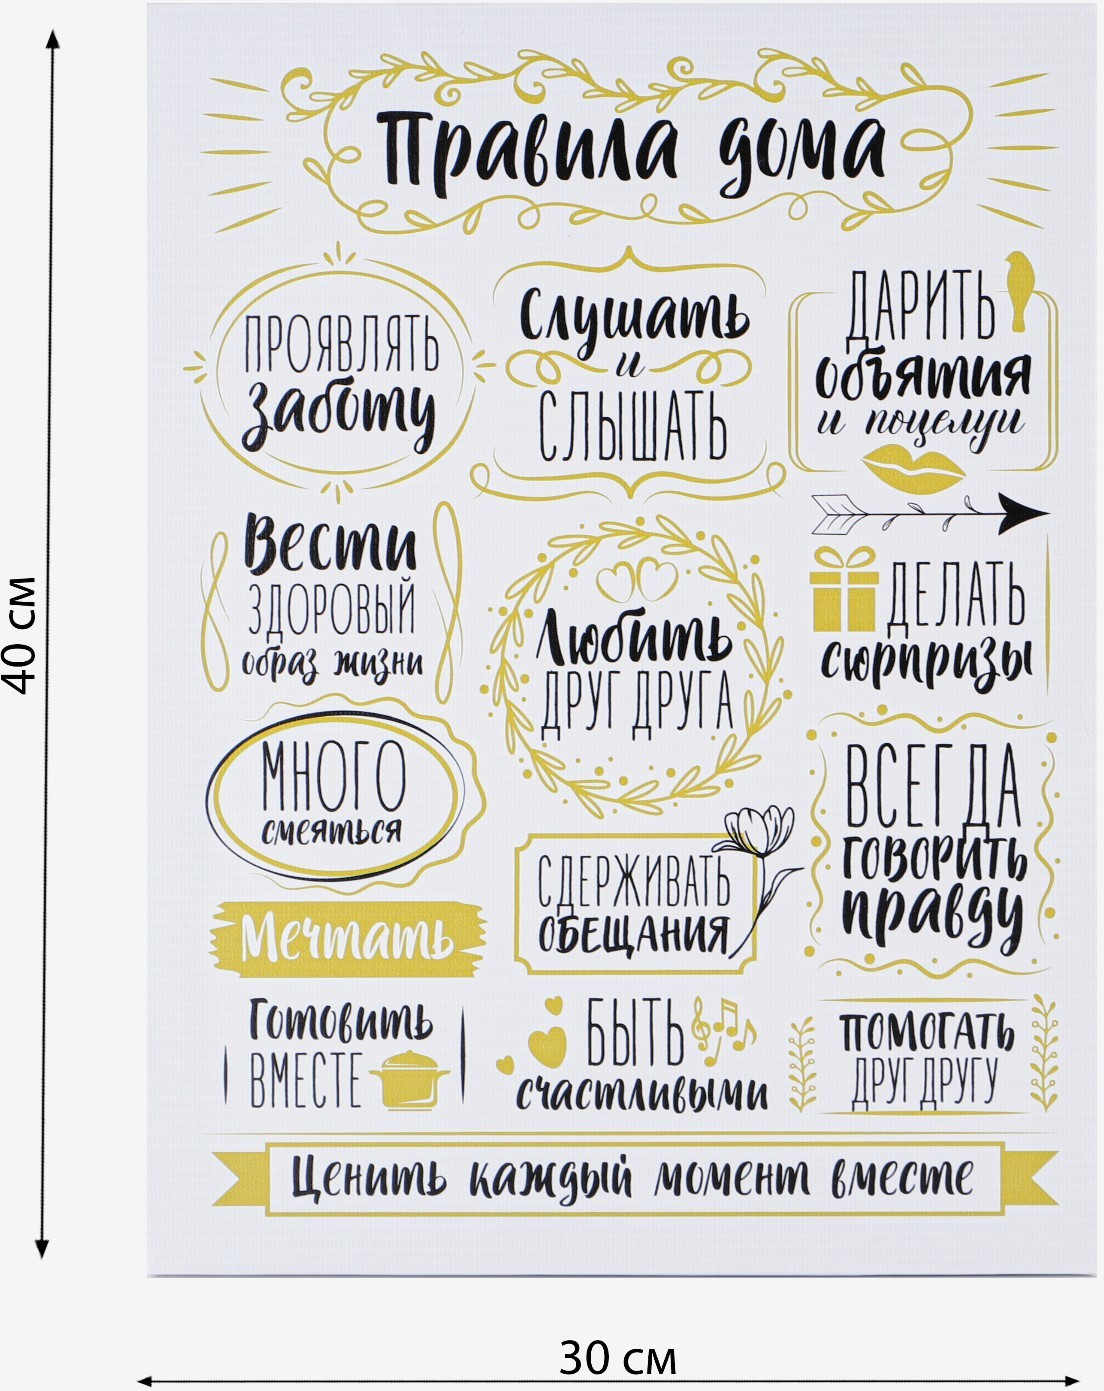 Правила дома
ПРОЯВЛЯТЬ
заботу
Слушать
и
СЛЫШАТЬ
ДАРИТЬ
объятия
и поцелуи
Вести
ЗДОРОВЫЙ
образ жизни
Любить
ДРУГ ДРУГА
ДЕЛАТЬ
сюрпризы
МНОГО
смеяться
СДЕРЖИВАТЬ
ОБЕЩАНИЯ
ВСЕГДА
ГОВОРИТЬ
правду
Мечтать
Готовить
ВМЕСТЕ
БЫТЬ
счастливыми
ПОМОГАТЬ
ДРУГ ДРУГУ
Ценить каждый момент вместе
40 см
30 см